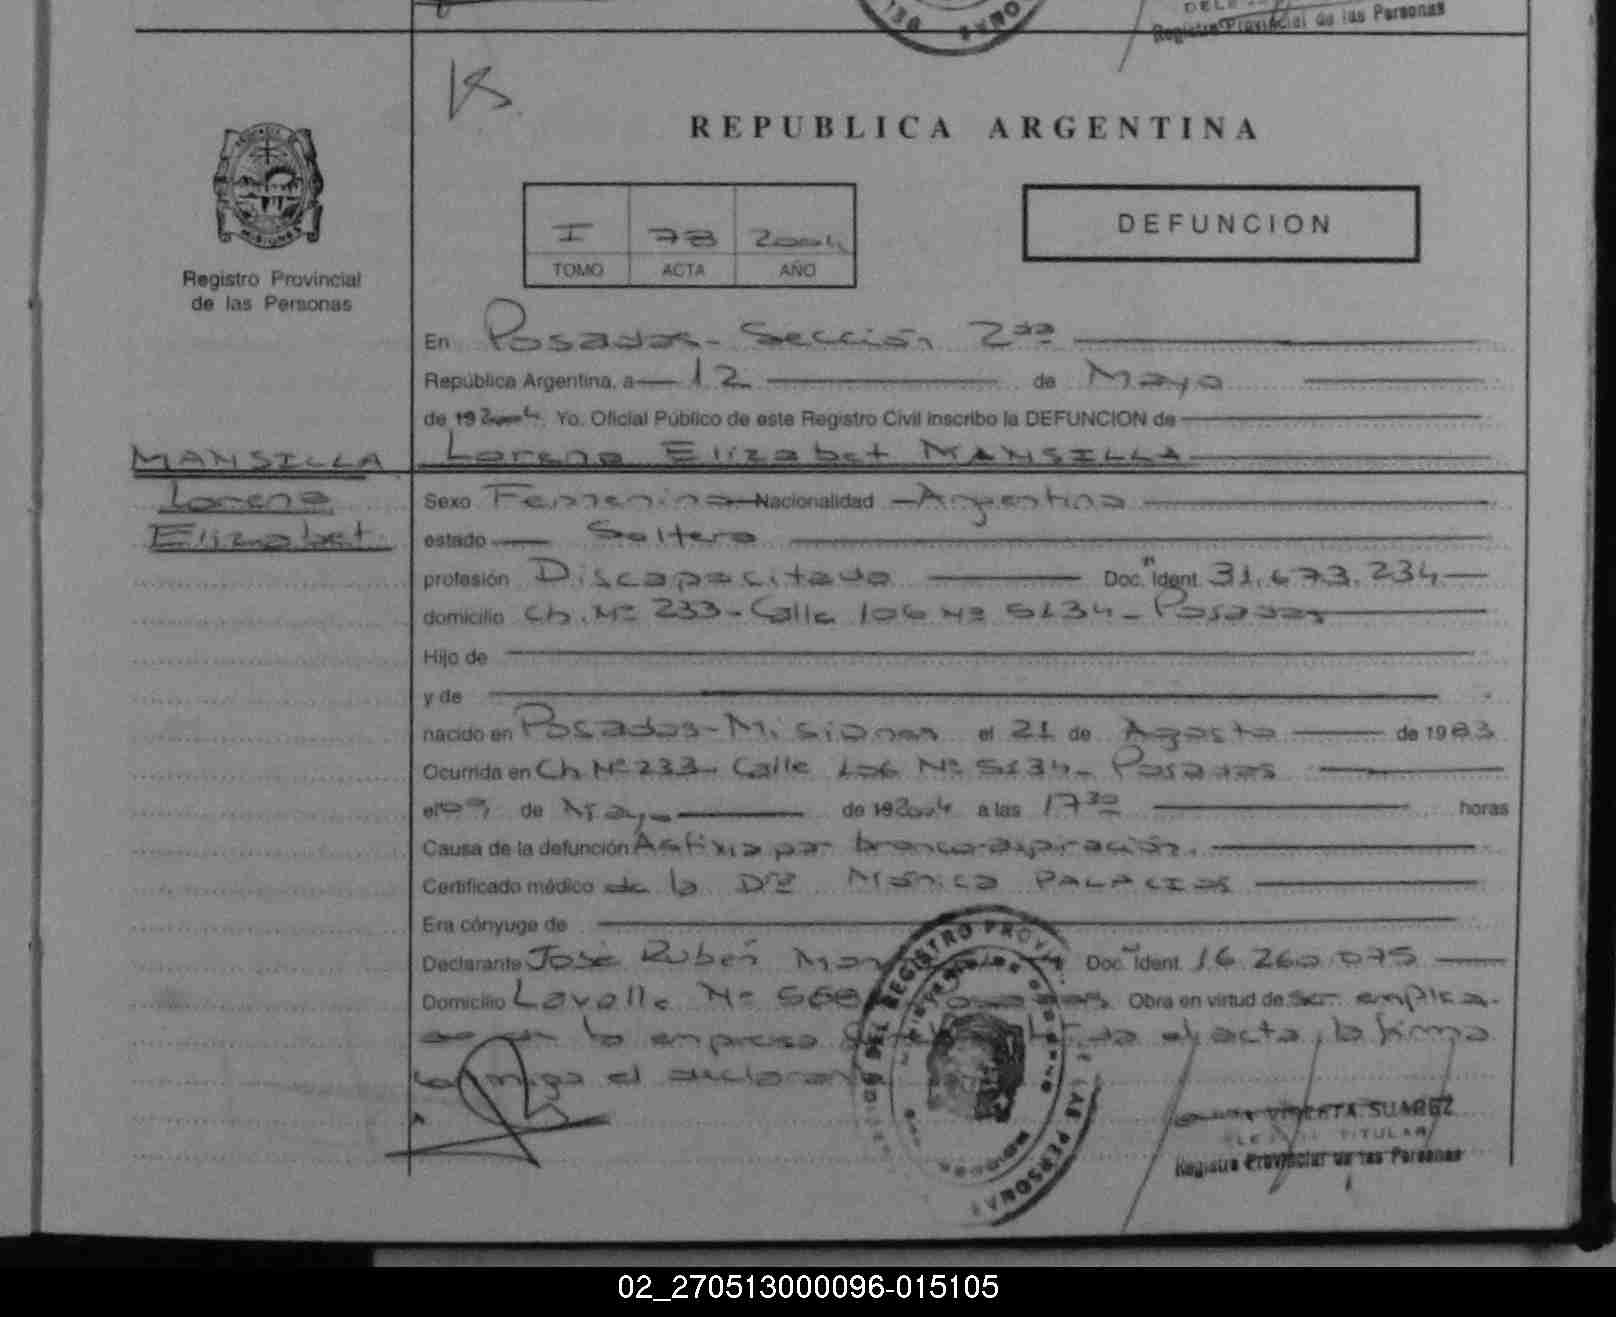 Registro Provincial de las Personas
REPUBLICA ARGENTINA
MISIONES
Registro Provincial
de las Personas
I 78 2004
TOMO ACTA AÑO
DEFUNCION
En Posadas - Sección 2da
República Argentina, a 12 de Mayo
de 19 2004. Yo. Oficial Público de este Registro Civil inscribo la DEFUNCION de
Lorena Elizabet MANSILLA
MANSILLA
Lorena
Elizabet
Sexo Femenino Nacionalidad Argentina
estado Soltera
profesión Discapacitada Doc. Ident. 31.673.234
domicilio Ch. Nº 233 - Calle 106 Nº 5134 - Posadas
Hijo de
y de
nacido en Posadas - Misiones el 21 de Agosto de 1983
Ocurrida en Ch Nº 233 - Calle 106 Nº 5134 - Posadas
el 09 de Mayo de 19 2004 a las 17 30 horas
Causa de la defunción Asfixia por broncoaspiración.
Certificado médico de la Dra Mónica PALACIOS
Era cónyuge de
Declarante José Rubén Doc. Ident. 16.260.075
Domicilio Lavalle Nº Obra en virtud de ser emplea-
do en la empresa el acta, la firma
conmigo el
REGISTRO PROVINCIAL DE LAS PERSONAS
SUAREZ
TITULAR
Registro Provincial de las Personas
02_270513000096-015105